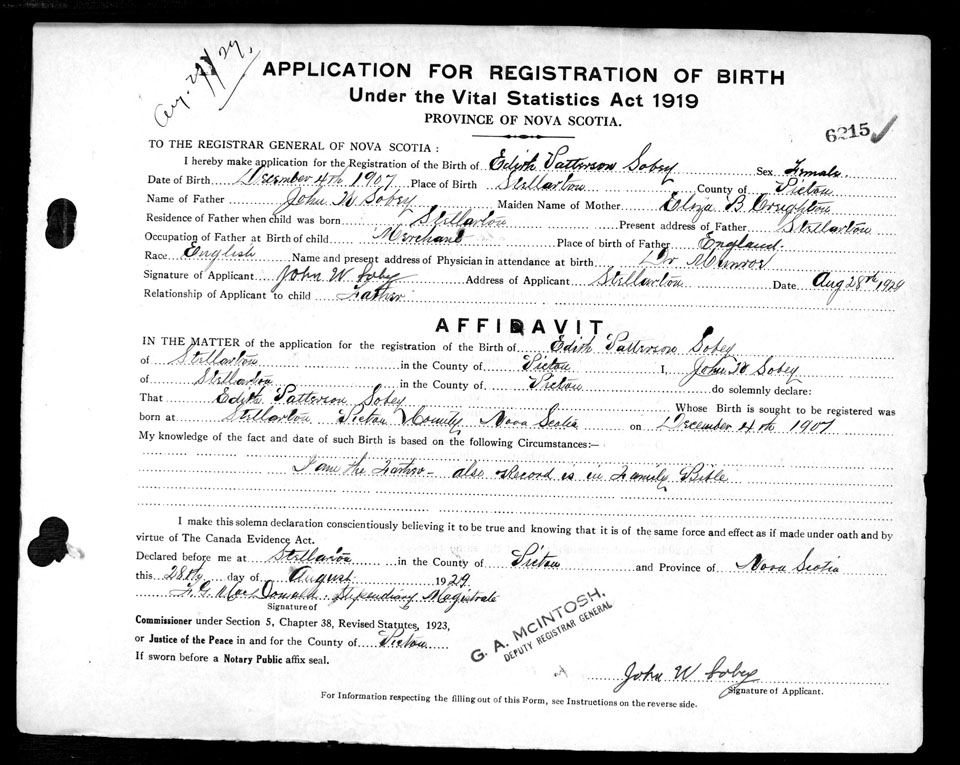 Aug. 29/29.
APPLICATION FOR REGISTRATION OF BIRTH
Under the Vital Statistics Act 1919
PROVINCE OF NOVA SCOTIA.
6215 ✓
TO THE REGISTRAR GENERAL OF NOVA SCOTIA:
I hereby make application for the Registration of the Birth of Edith Patterson Sobey Sex Female
Date of Birth December 4th 1907 Place of Birth Stellarton County of Pictou
Name of Father John W Sobey Maiden Name of Mother Eliza B. Creighton
Residence of Father when child was born Stellarton Present address of Father Stellarton
Occupation of Father at Birth of child Merchant Place of birth of Father England
Race English Name and present address of Physician in attendance at birth Dr Munroe
Signature of Applicant John W Sobey Address of Applicant Stellarton Date Aug 28th 1929
Relationship of Applicant to child Father
AFFIDAVIT
IN THE MATTER of the application for the registration of the Birth of Edith Patterson Sobey
of Stellarton in the County of Pictou I, John W Sobey
of Stellarton in the County of Pictou do solemnly declare:
That Edith Patterson Sobey Whose Birth is sought to be registered was
born at Stellarton Pictou County Nova Scotia on December 4th 1907
My knowledge of the fact and date of such Birth is based on the following Circumstances:—
I am the Father – also Record is in Family Bible
I make this solemn declaration conscientiously believing it to be true and knowing that it is of the same force and effect as if made under oath and by
virtue of The Canada Evidence Act.
Declared before me at Stellarton in the County of Pictou and Province of Nova Scotia
this 28th day of August 1929
MacDonald Stipendiary Magistrate
Signature of
Commissioner under Section 5, Chapter 38, Revised Statutes, 1923,
or Justice of the Peace in and for the County of Pictou
If sworn before a Notary Public affix seal.
G. A. McINTOSH,
DEPUTY REGISTRAR GENERAL
John W Sobey
Signature of Applicant.
For Information respecting the filling out of this Form, see Instructions on the reverse side.